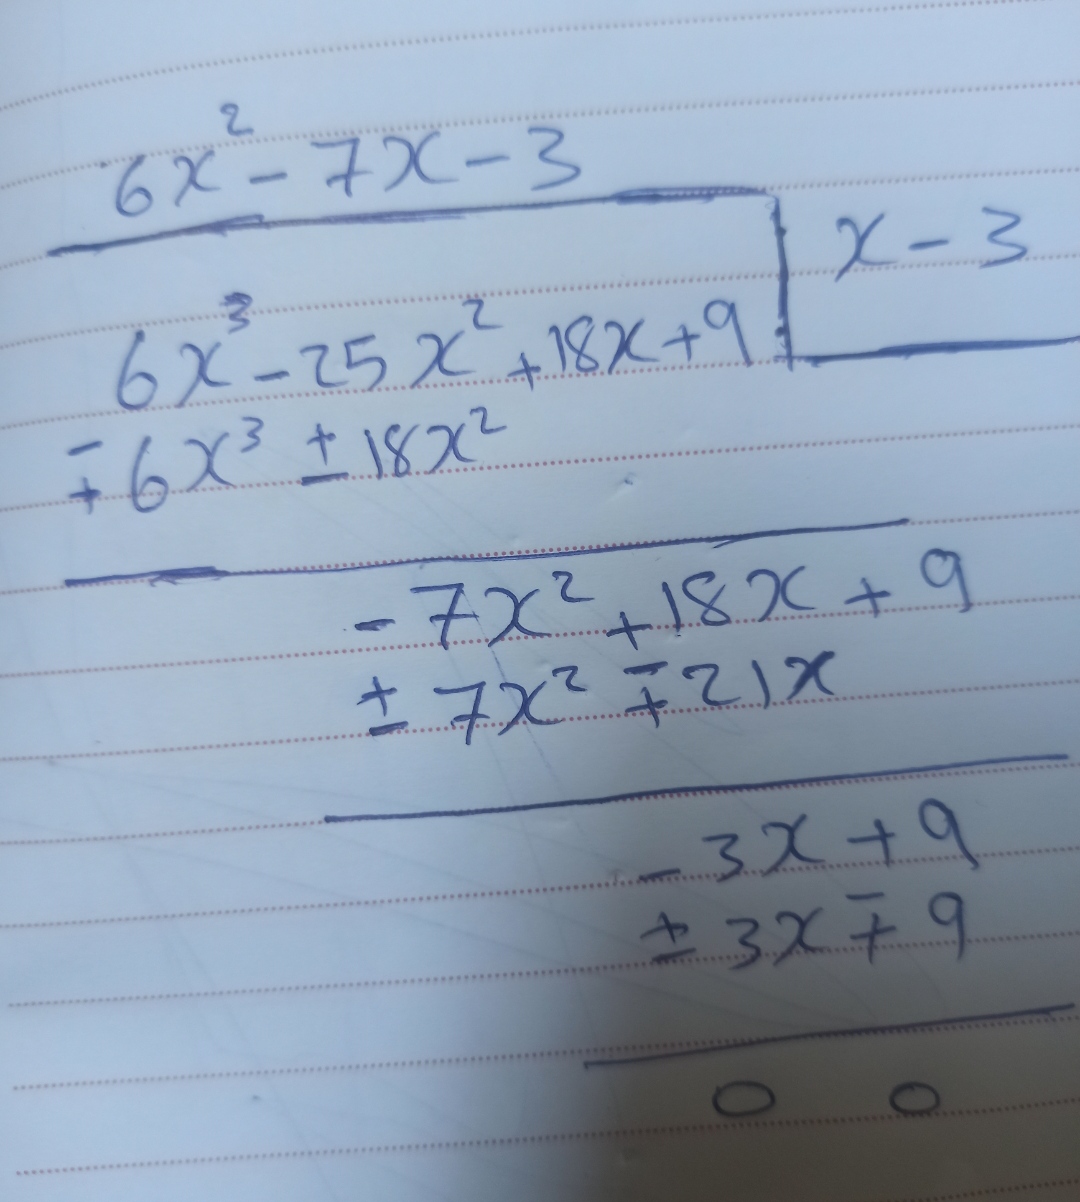 6x² - 7x - 3
x - 3
6x³ - 25x² + 18x + 9
∓ 6x³ ± 18x²
- 7x² + 18x + 9
± 7x² ∓ 21x
- 3x + 9
± 3x ∓ 9
0 0